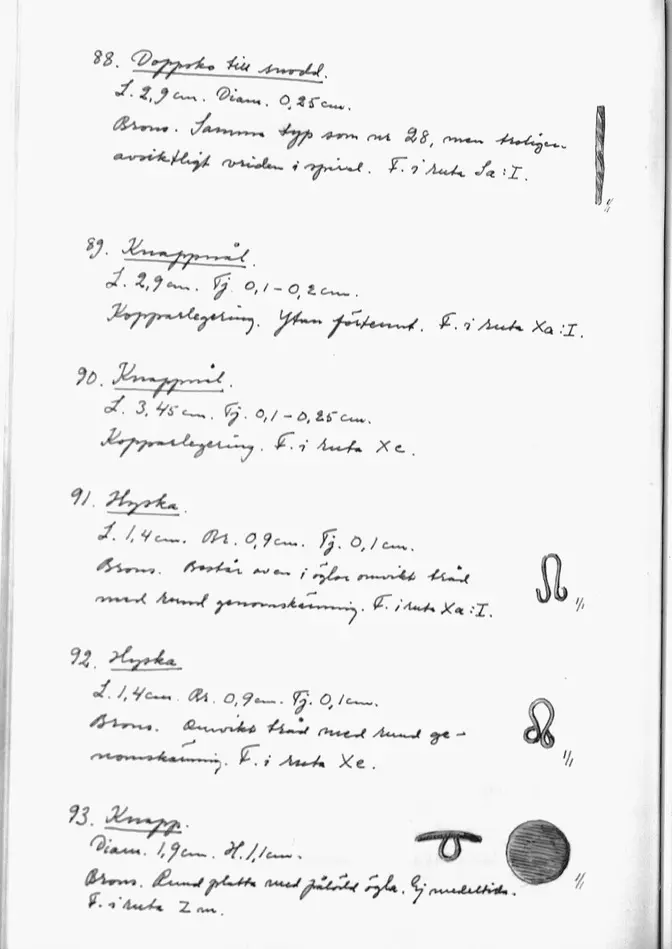 88. Doppsko till snodd.
L. 2,9 cm. Diam. 0,25 cm.
Brons. Samma typ som nr 28, men troligen
avsiktligt vriden i spiral. F. i ruta Sa:I.
1/1
89. Knappnål.
L. 2,9 cm. Tj. 0,1-0,2 cm.
Kopparlegering. Ytan förtennt. F. i ruta Xa:I.
90. Knappnål.
L. 3,45 cm. Tj. 0,1-0,25 cm.
Kopparlegering. F. i ruta Xc.
91. Hyska.
L. 1,4 cm. Br. 0,9 cm. Tj. 0,1 cm.
Brons. Består av en i öglor omvikt tråd
med rund genomskärning. F. i ruta Xa:I.
1/1
92. Hyska
L. 1,4 cm. Br. 0,9 cm. Tj. 0,1 cm.
Brons. Omvikt tråd med rund ge-
nomskärning. F. i ruta Xc.
1/1
93. Knapp.
Diam. 1,9 cm. H. 1,1 cm.
Brons. Rund platta med pålödd ögla. Ej medeltida.
F. i ruta Zm.
1/1